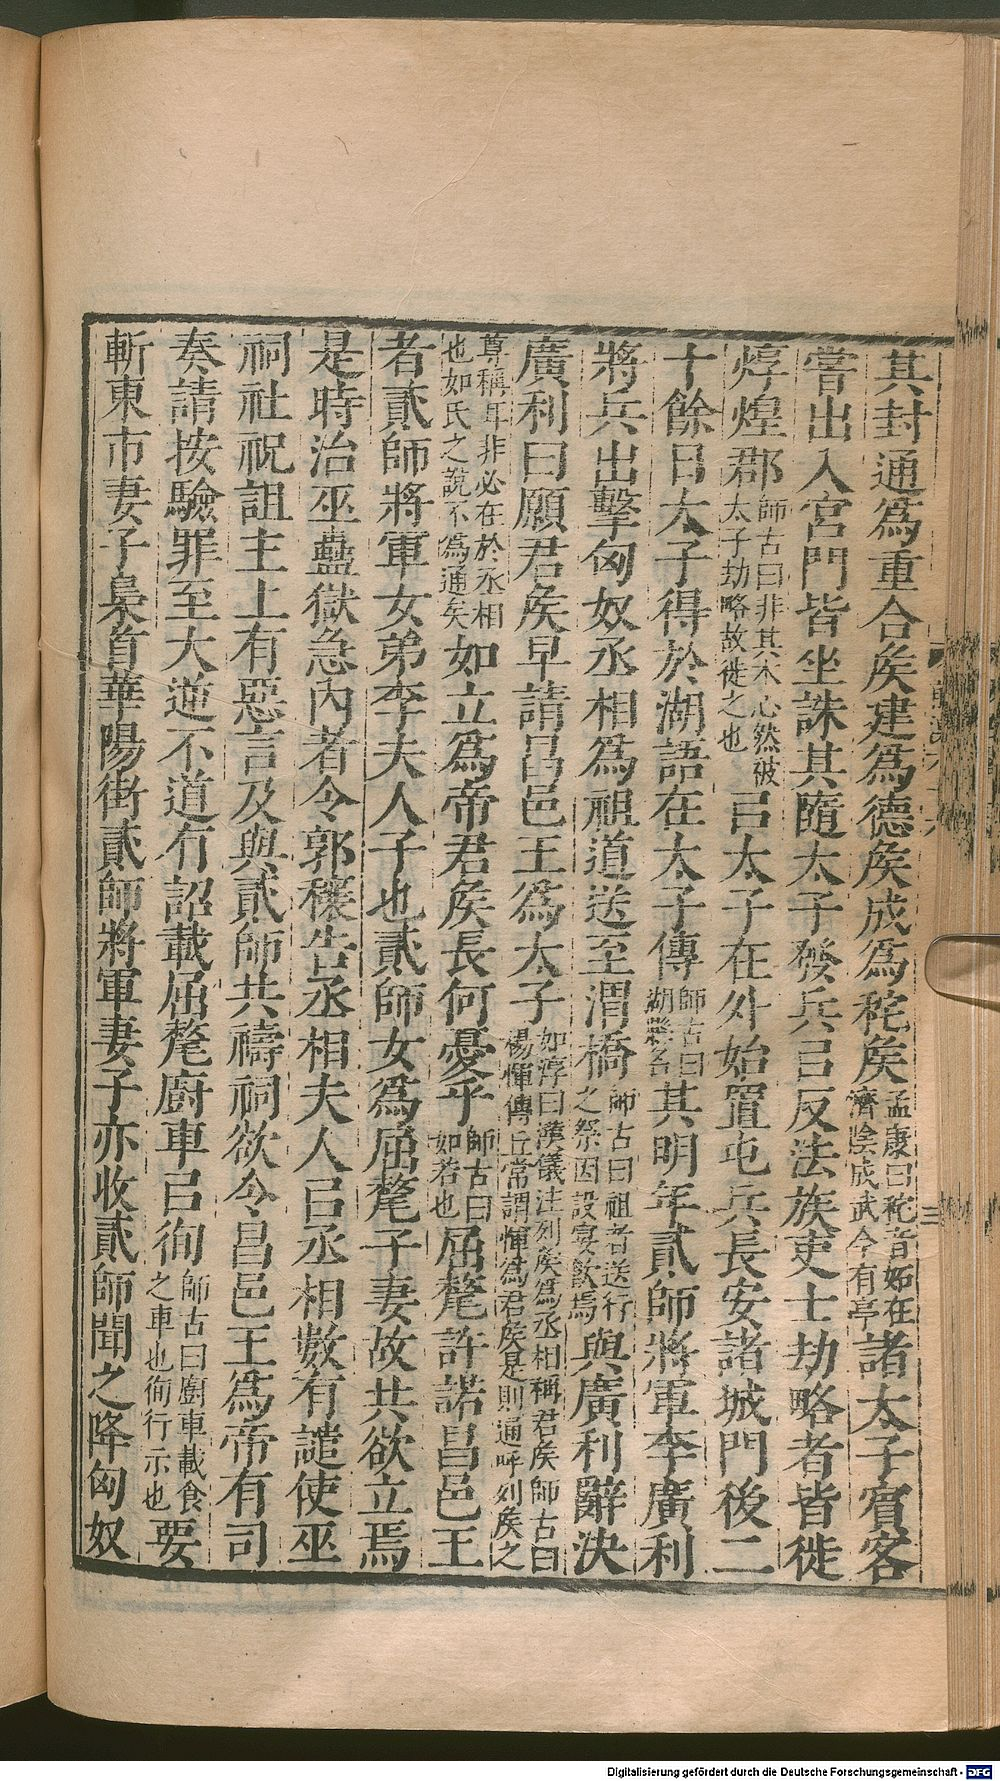 其封通爲重合矦建爲德矦成爲秺矦孟康曰秺音妬在濟隂成武今有亭諸太子賓客
嘗出入宮門皆坐誅其隨太子發兵㠯反法族吏士劫略者皆徙
焞煌郡師古曰非其本心然被太子劫略故徙之也㠯太子在外始置屯兵長安諸城門後二
十餘日太子得於湖語在太子傳師古曰湖縣名其明年貳師將軍李廣利
將兵出擊匈奴丞相爲祖道送至渭橋師古曰祖者送行之祭因設宴飲焉與廣利辭決
廣利曰願君矦早請昌邑王爲太子如淳曰漢儀注列矦爲丞相稱君矦師古曰楊惲傳丘常謂惲爲君矦是則通呼列矦之
尊稱耳非必在於丞相也如氏之說不爲通矣如立爲帝君矦長何憂乎師古曰如若也屈氂許諾昌邑王
者貳師將軍女弟李夫人子也貳師女爲屈氂子妻故共欲立焉
是時治巫蠱獄急內者令郭穰告丞相夫人㠯丞相數有譴使巫
祠社祝詛主上有惡言及與貳師共禱祠欲令昌邑王爲帝有司
奏請按驗罪至大逆不道有詔載屈氂廚車㠯徇師古曰廚車載食之車也徇行示也要
斬東市妻子梟首華陽街貳師將軍妻子亦收貳師聞之降匈奴
三
Digitalisierung gefördert durch die Deutsche Forschungsgemeinschaft - DFG